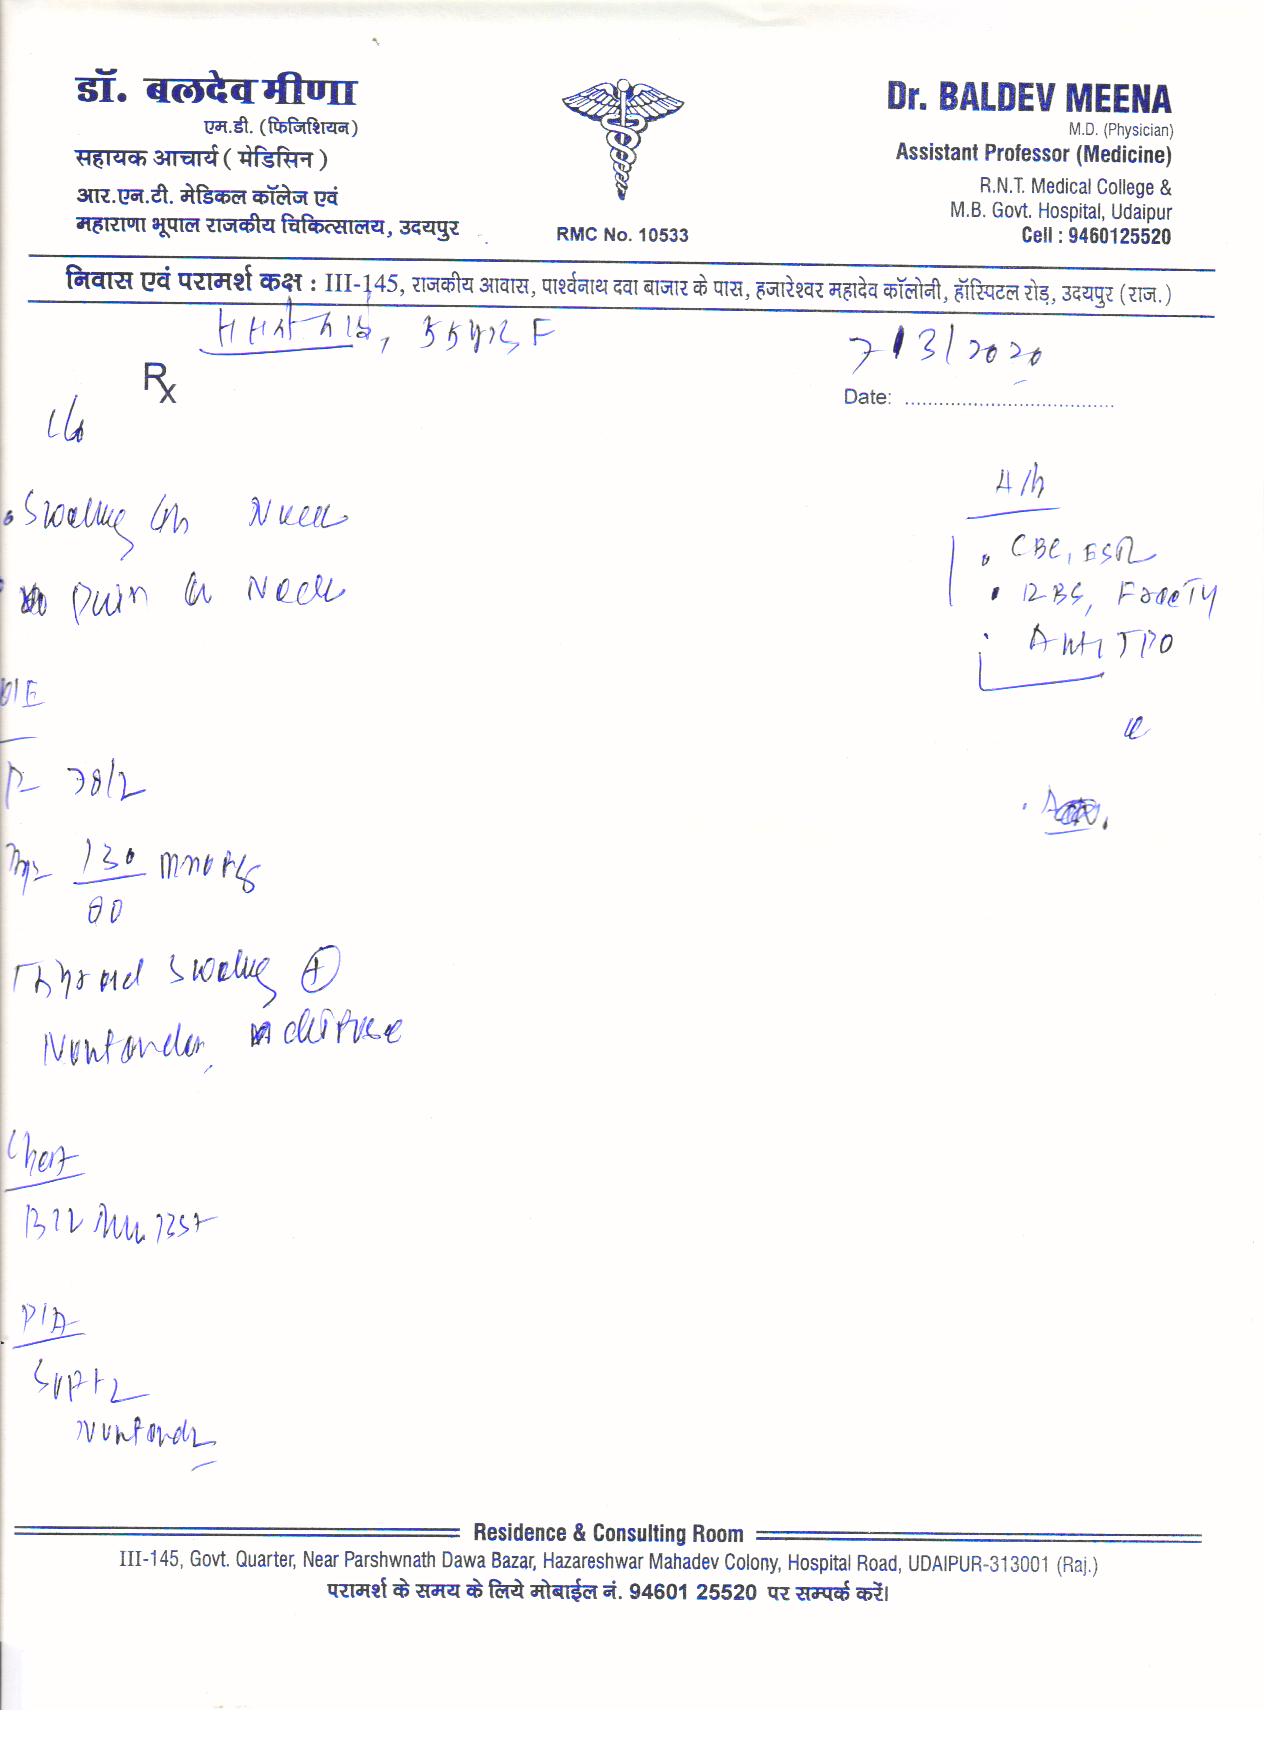 डॉ. बलदेव मीणा
एम.डी. (फिजिशियन)
सहायक आचार्य ( मेडिसिन )
आर.एन.टी. मेडिकल कॉलेज एवं
महाराणा भूपाल राजकीय चिकित्सालय, उदयपुर
RMC No. 10533
Dr. BALDEV MEENA
M.D. (Physician)
Assistant Professor (Medicine)
R.N.T. Medical College &
M.B. Govt. Hospital, Udaipur
Cell : 9460125520
निवास एवं परामर्श कक्ष : III-145, राजकीय आवास, पार्श्वनाथ दवा बाजार के पास, हजारेश्वर महादेव कॉलोनी, हॉस्पिटल रोड़, उदयपुर (राज.)
F
7/3/2020
Rx
Date: ....................................
C/o
Swelling in Neck
Pain in Neck
O/E
P- 78/
130 mm of Hg
80
Thyroid Swelling +
Nontender, diffuse
Chest
P/A
Soft
Nontender
CBC, ESR
RBS, Free Ty
Anti TPO
Residence & Consulting Room
III-145, Govt. Quarter, Near Parshwnath Dawa Bazar, Hazareshwar Mahadev Colony, Hospital Road, UDAIPUR-313001 (Raj.)
परामर्श के समय के लिये मोबाईल नं. 94601 25520 पर सम्पर्क करें।